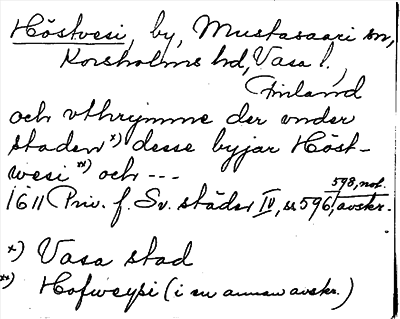 Höstvesi, by, Mustasaari sn,
Korsholms hd, Vasa l.,
Finland
och vthrymme der vnder
staden x) desse byjar Höst-
wesi xx) och ---
598, not.
1611 Priv. f. Sv. städer IV, ss 596, avskr.
x) Vasa stad
xx) Hofweysi (i en annan avskr.)